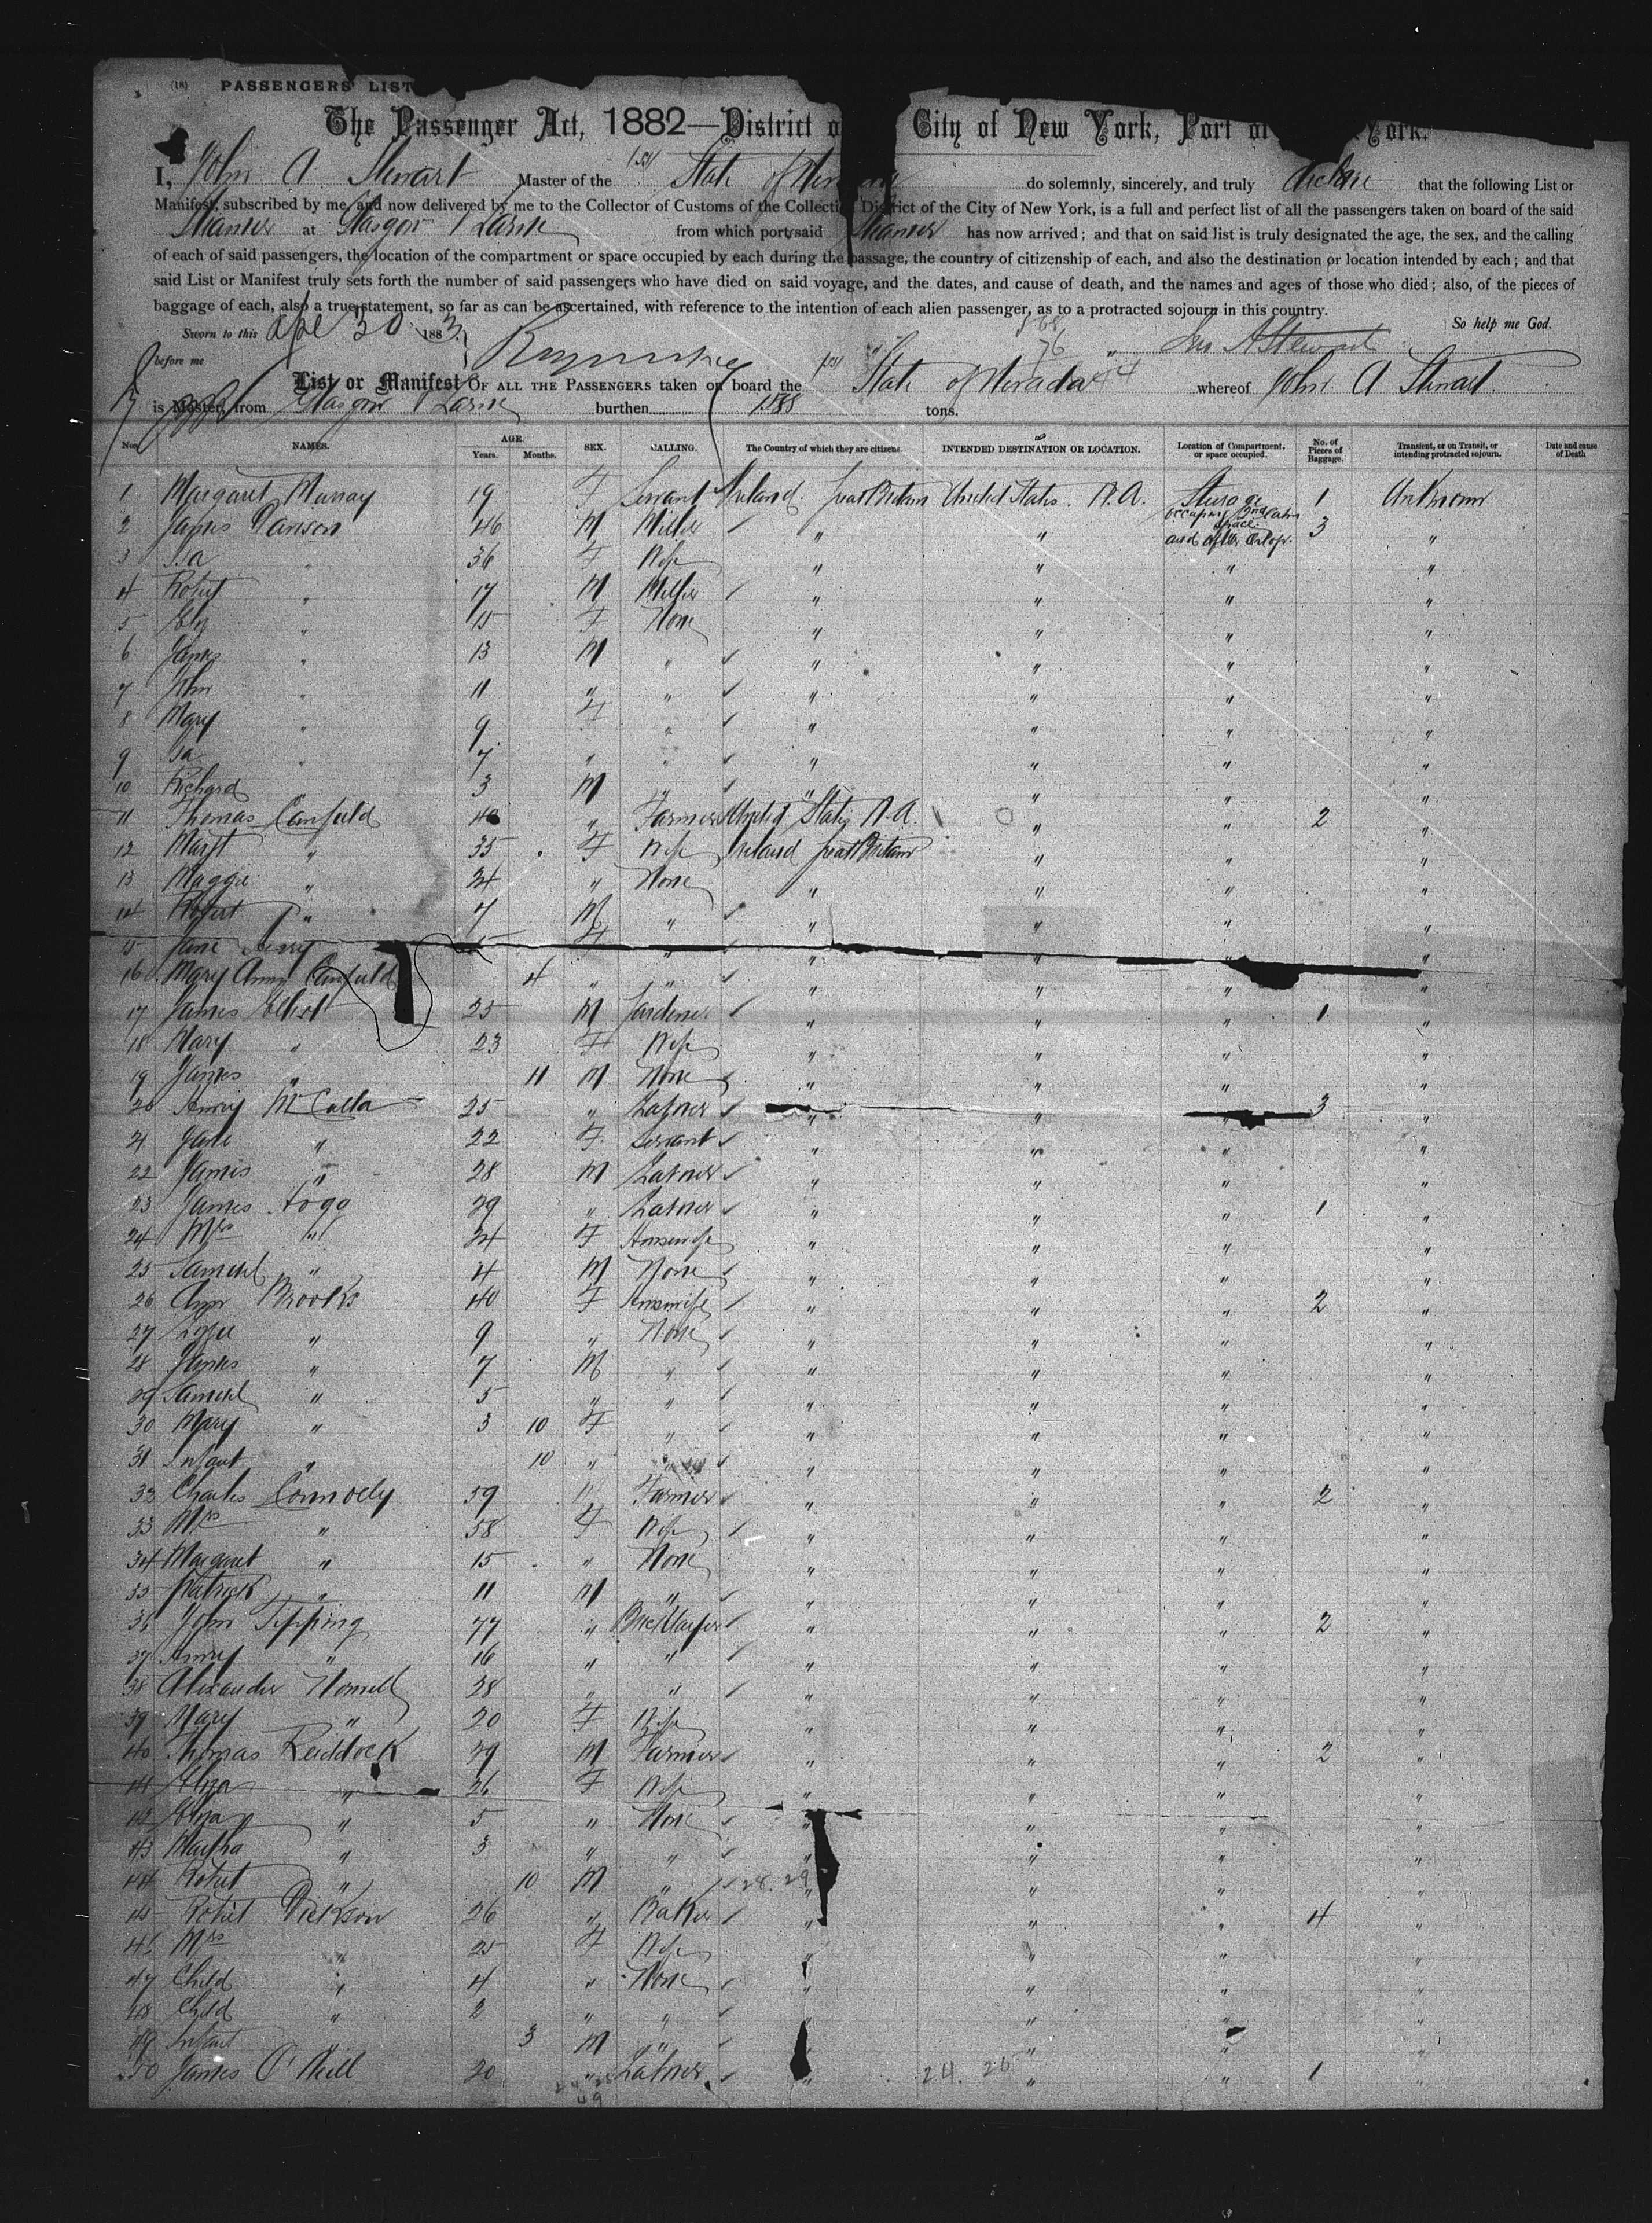 (18) PASSENGERS' LIST
The Passenger Act, 1882—District o City of New York, Port of York.
I, John A. Stewart Master of the SS State of do solemnly, sincerely, and truly declare that the following List or
Manifest, subscribed by me, and now delivered by me to the Collector of Customs of the Collection District of the City of New York, is a full and perfect list of all the passengers taken on board of the said
Steamer at Glasgow & Larne from which port, said Steamer has now arrived; and that on said list is truly designated the age, the sex, and the calling
of each of said passengers, the location of the compartment or space occupied by each during the passage, the country of citizenship of each, and also the destination or location intended by each; and that
said List or Manifest truly sets forth the number of said passengers who have died on said voyage, and the dates, and cause of death, and the names and ages of those who died; also, of the pieces of
baggage of each, also a true statement, so far as can be ascertained, with reference to the intention of each alien passenger, as to a protracted sojourn in this country.
Sworn to this Apl 30 1883 So help me God.
before me Jno A Stewart
List or Manifest OF ALL THE PASSENGERS taken on board the SS State of Nevada whereof John A Stewart
is Master, from Glasgow & Larne burthen 1488 tons.
Nos. NAMES. AGE. Years. Months. SEX. CALLING. The Country of which they are citizens. INTENDED DESTINATION OR LOCATION. Location of Compartment, or space occupied. No. of Pieces of Baggage. Transient, or on Transit, or intending protracted sojourn. Date and cause of Death
1 Margaret Murray 19 F Servant Ireland Great Britain United States. N.A. Steerage 1 Unknown
occupying 2nd Cabin space and after Orlop.
2 James Dawson 46 M Miller " " 3 "
3 Isa " 36 F Wife " " " "
4 Robert " 17 M Miller " " " "
5 Eliz " 15 F None " " " "
6 James " 13 M " " " " "
7 John " 11 " " " " " "
8 Mary " 9 F " " " " "
9 Isa " 7 " " " " " "
10 Richard 3 M " " " " "
11 Thomas Canfield 40 " Farmer United States N.A. " " 2 "
12 Margt " 35 F Wife Ireland Great Britain " " "
13 Maggie " 24 " None " " " "
14 Robert " 7 M " " " " "
15 Jane Henry F " " " "
16 Mary Ann Canfield 4 " " " " "
17 James Elliott 25 M Gardener " " " 1 "
18 Mary " 23 F Wife " " " "
19 James " 11 M None " " " "
20 Henry McCalla 25 " Labourer " " " 3 "
21 Jane " 22 F Servant " " " "
22 James " 28 M Labourer " " " "
23 James Hogg 29 " Labourer " " " 1 "
24 Mrs " 24 F Housewife " " " "
25 Samuel " 4 M None " " " "
26 Ann Brooks 40 F Housewife " " " 2 "
27 Lizzie " 9 " None " " " "
28 James " 7 M " " " " "
29 Samuel " 5 " " " " " "
30 Mary " 3 10 F " " " " "
31 Infant " 10 " " " " " "
32 Charles Connoely 59 M Farmer " " " 2 "
33 Mrs " 58 F Wife " " " "
34 Margaret " 15 " None " " " "
35 Patrick " 11 M " " " " "
36 John Tipping 77 " Bricklayer " " " 2 "
37 Henry " 16 " " " " " "
38 Alexander 28 " " " " " "
39 Mary " 20 F Wife " " " "
40 Thomas Reiddock 29 M Farmer " " " 2 "
41 Eliza " 26 F Wife " " " "
42 Eliza " 5 " None " " " "
43 Martha " 3 " " " " " "
44 Robert " 10 M " " " " "
45 Robert Dickson 26 " Baker " " " 4 "
46 Mrs " 25 F Wife " " " "
47 Child " 4 " None " " " "
48 Child " 2 " " " " " "
49 Infant 3 M " " " " "
50 James O'Neill 20 " Labourer " 24. 25 " " 1 "